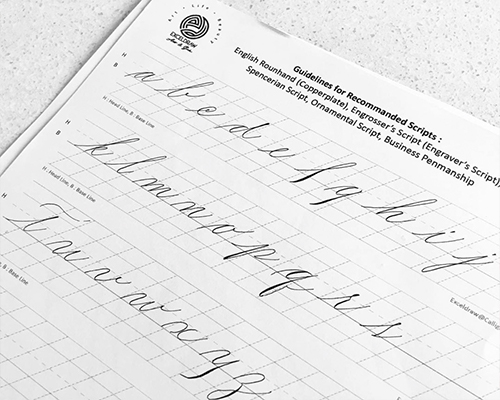 Art - Life - Beauty
EXCELDRAW
Guidelines for Recommanded Scripts :
English Rounhand (Copperplate), Engrosser's Script (Engraver's Script),
Spencerian Script, Ornamental Script, Business Penmanship
H
B
a b c d e f g h i j
H : Head Line, B : Base Line
Exceldraw@Callig
H
B
k l m n o p q r s
H : Head Line, B : Base Line
H
T u v w x y z
B : Base Line